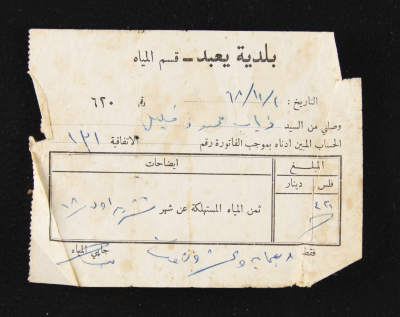 بلدية يعبد - قسم المياه
التاريخ : ٢/١١/٦٨ رقم ٦٢٠
وصلني من السيد ذياب محمود خليل
الحساب المبين ادناه بموجب الفاتورة رقم الاتفاقية ١٣١
المبلغ ايضاحات
فلس دينار
٤٢٠ ثمن المياه المستهلكة عن شهر تشرين اول ٦٨
فقط اربعماية وعشرون فلسا جابي المياه